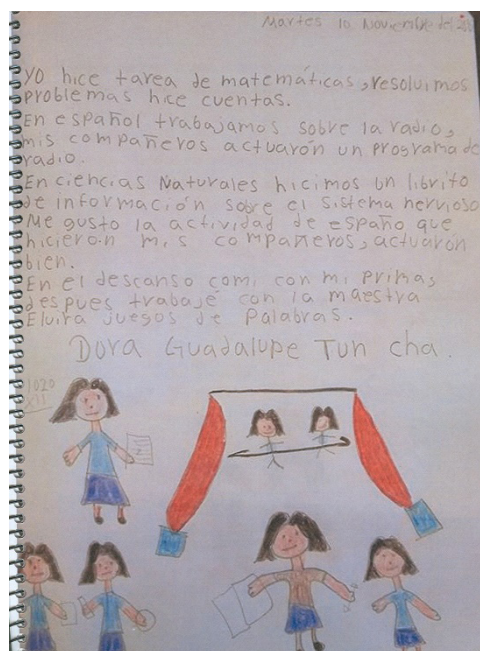 Martes 10 Noviembre del
Yo hice tarea de matemáticas, resolvimos
problemas hice cuentas.
En español trabajamos sobre la radio,
mis compañeros actuarón un programa de
radio.
En ciencias Naturales hicimos un librito
de información sobre el sistema nervioso
Me gusto la actividad de españo que
hicierón mis compañeros, actuarón
bien.
En el descanso comi con mi primas
despues trabajé con la maestra
Elvira juegos de Palabras.
Dora Guadalupe Tun cha.
1020